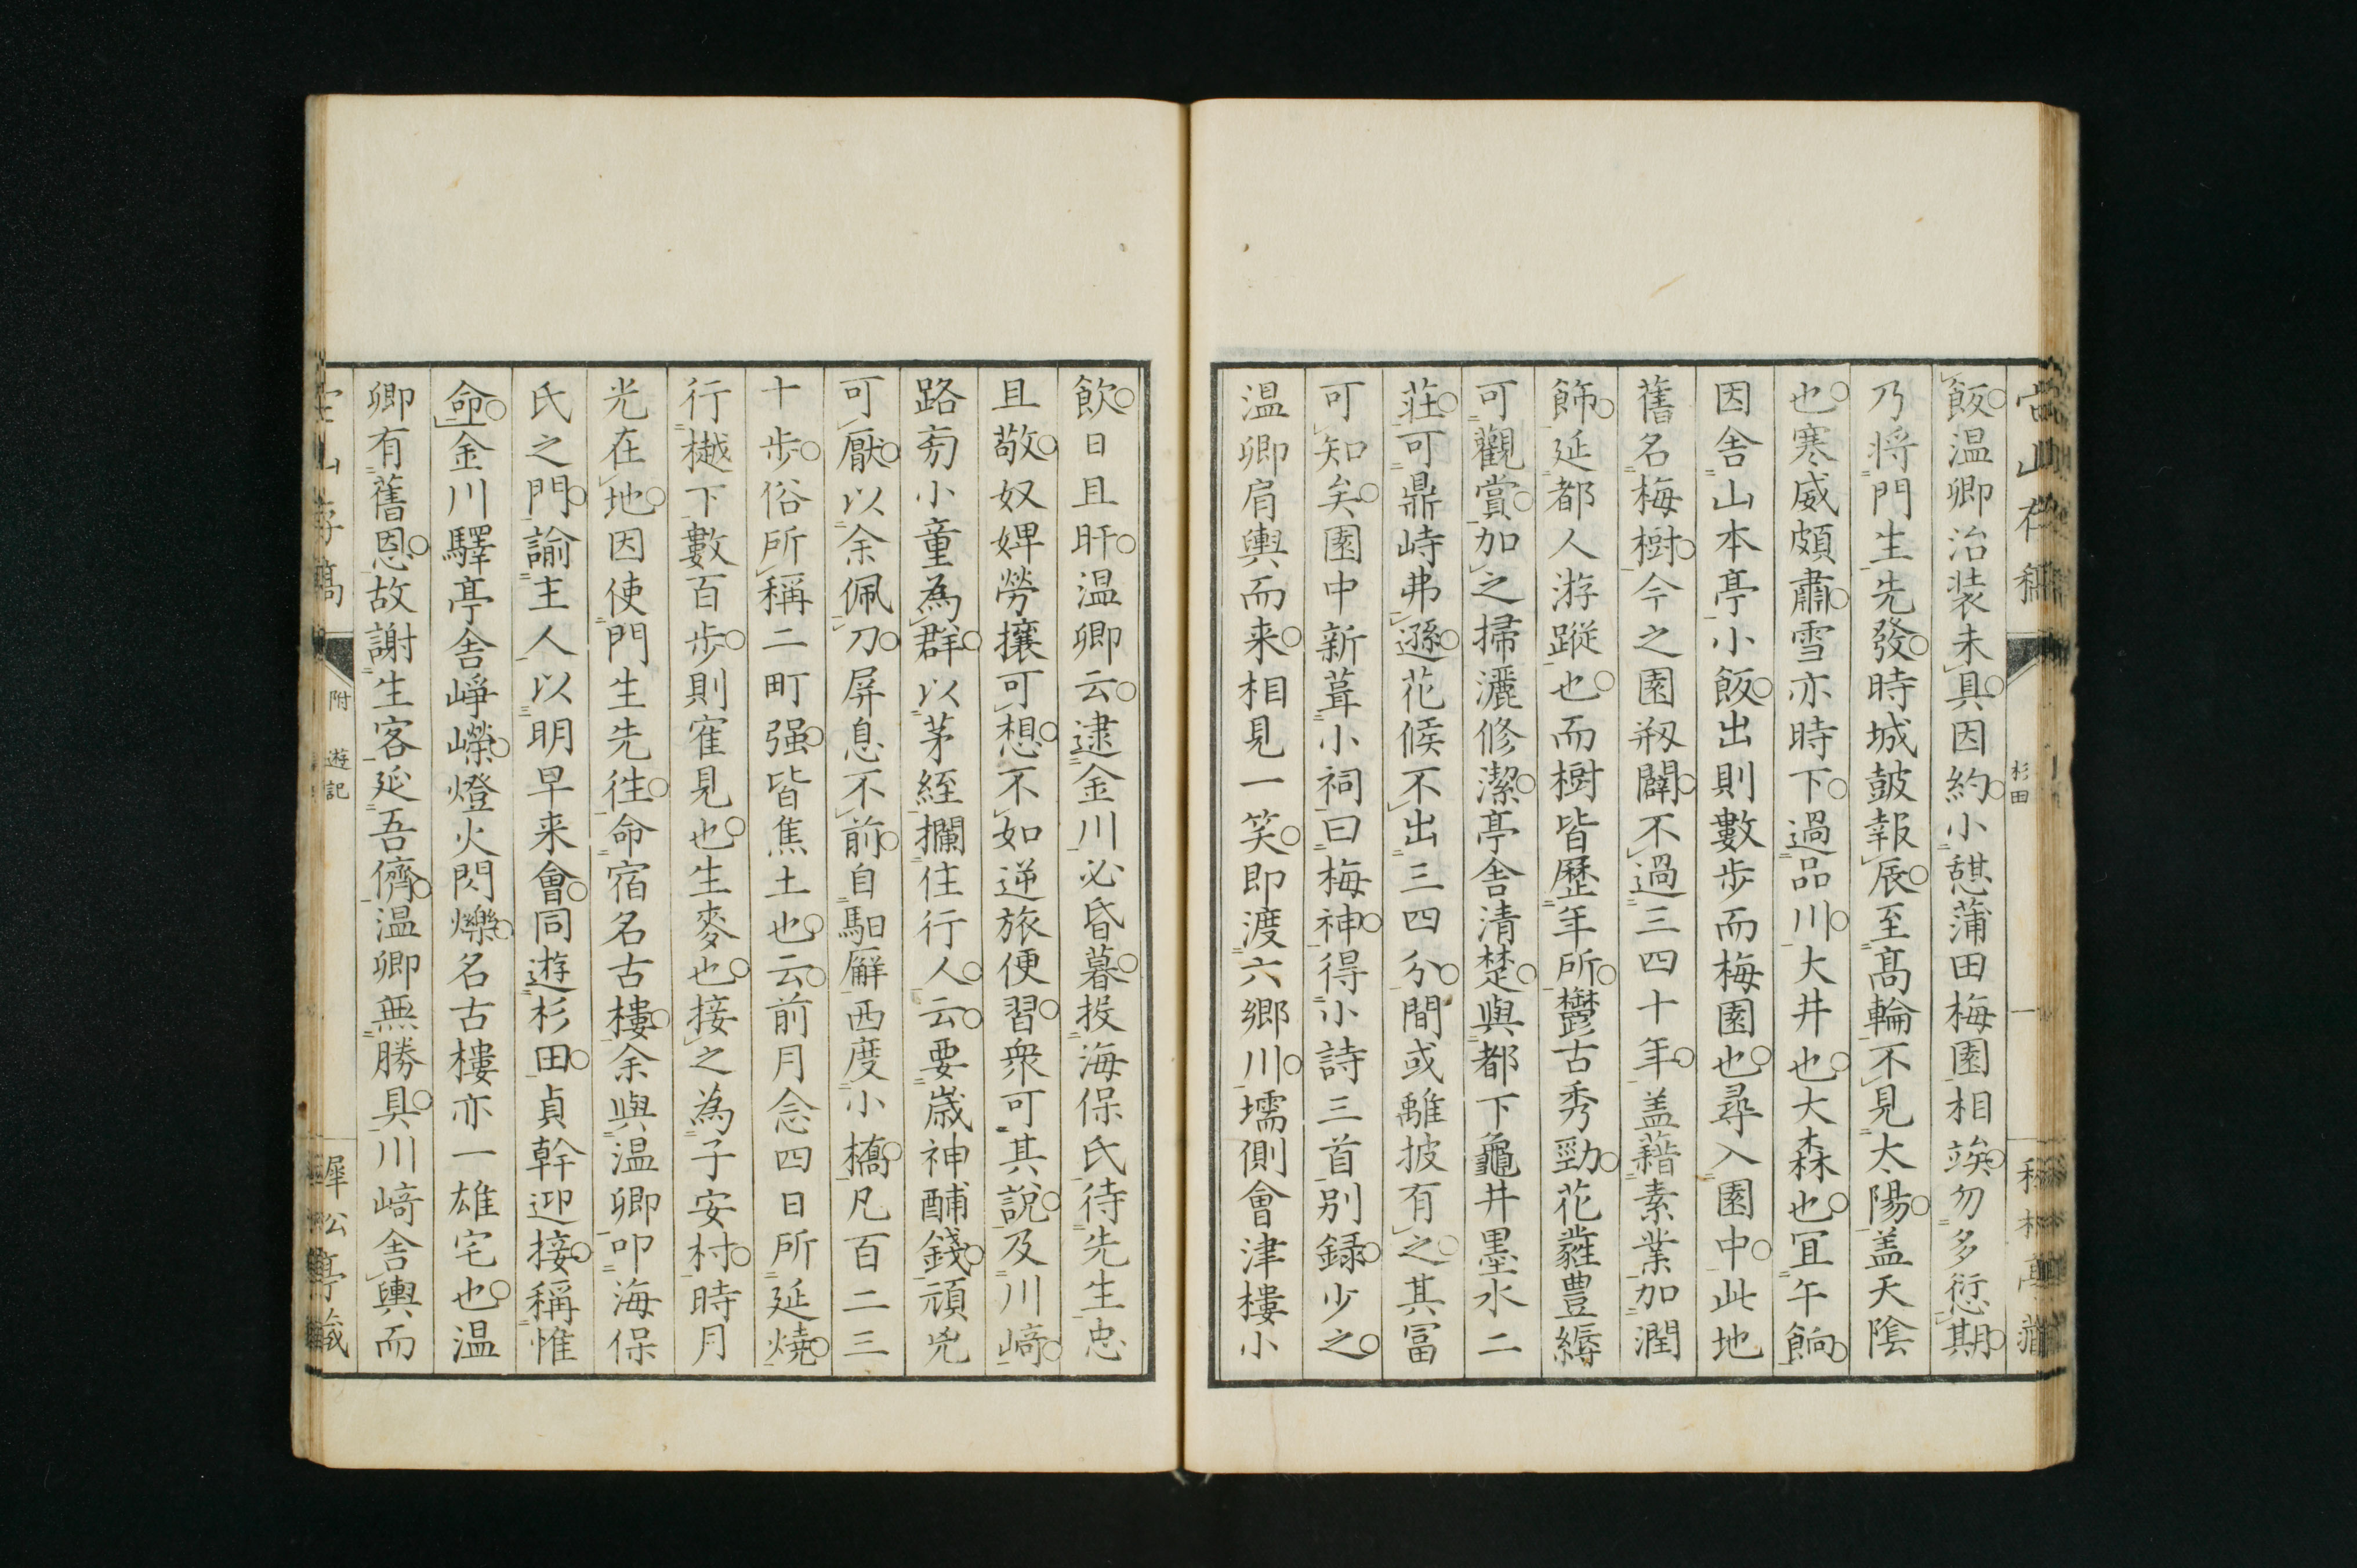 飯温卿治装未具因約小憩蒲田梅園相竢勿多愆期
乃将門生先發時城皷報辰至髙輪不見太陽盖天隂
也寒威頗肅雪亦時下過品川大井也大森也冝午餉
因舎山本亭小飯出則數歩而梅園也尋入園中此地
舊名梅樹今之園剏闢不過三四十年盖藉素業加潤
飾延都人游蹤也而樹皆歷年所鬱古秀勁花蕤豊縟
可觀賞加之掃灑修潔亭舎清楚與都下龜井墨水二
莊可鼎峙弗遜花候不出三四分間或離披有之其冨
可知矣園中新葺小祠曰梅神得小詩三首别録少之
温卿肩輿而来相見一笑即渡六郷川壖側會津樓小
飲日且旰温卿云逮金川必昏暮投海保氏待先生忠
且敬奴婢勞攘可想不如逆旅便習衆可其說及川﨑
路旁小童為群以茅絰攔住行人云要嵗神酺錢頑兇
可厭以余佩刀屏息不前自馹廨西度小橋凡百二三
十歩俗所稱二町强皆焦土也云前月念四日所延燒
行樾下數百歩則寉見也生麥也接之為子安村時月
光在地因使門生先往命宿名古樓余與温卿叩海保
氏之門諭主人以明早来會同遊杉田貞幹迎接稱惟
命金川驛亭舎崢嶸燈火閃爍名古樓亦一雄宅也温
卿有舊恩故謝生客延吾儕温卿無勝具川﨑舎輿而
附
遊記
杉田
一